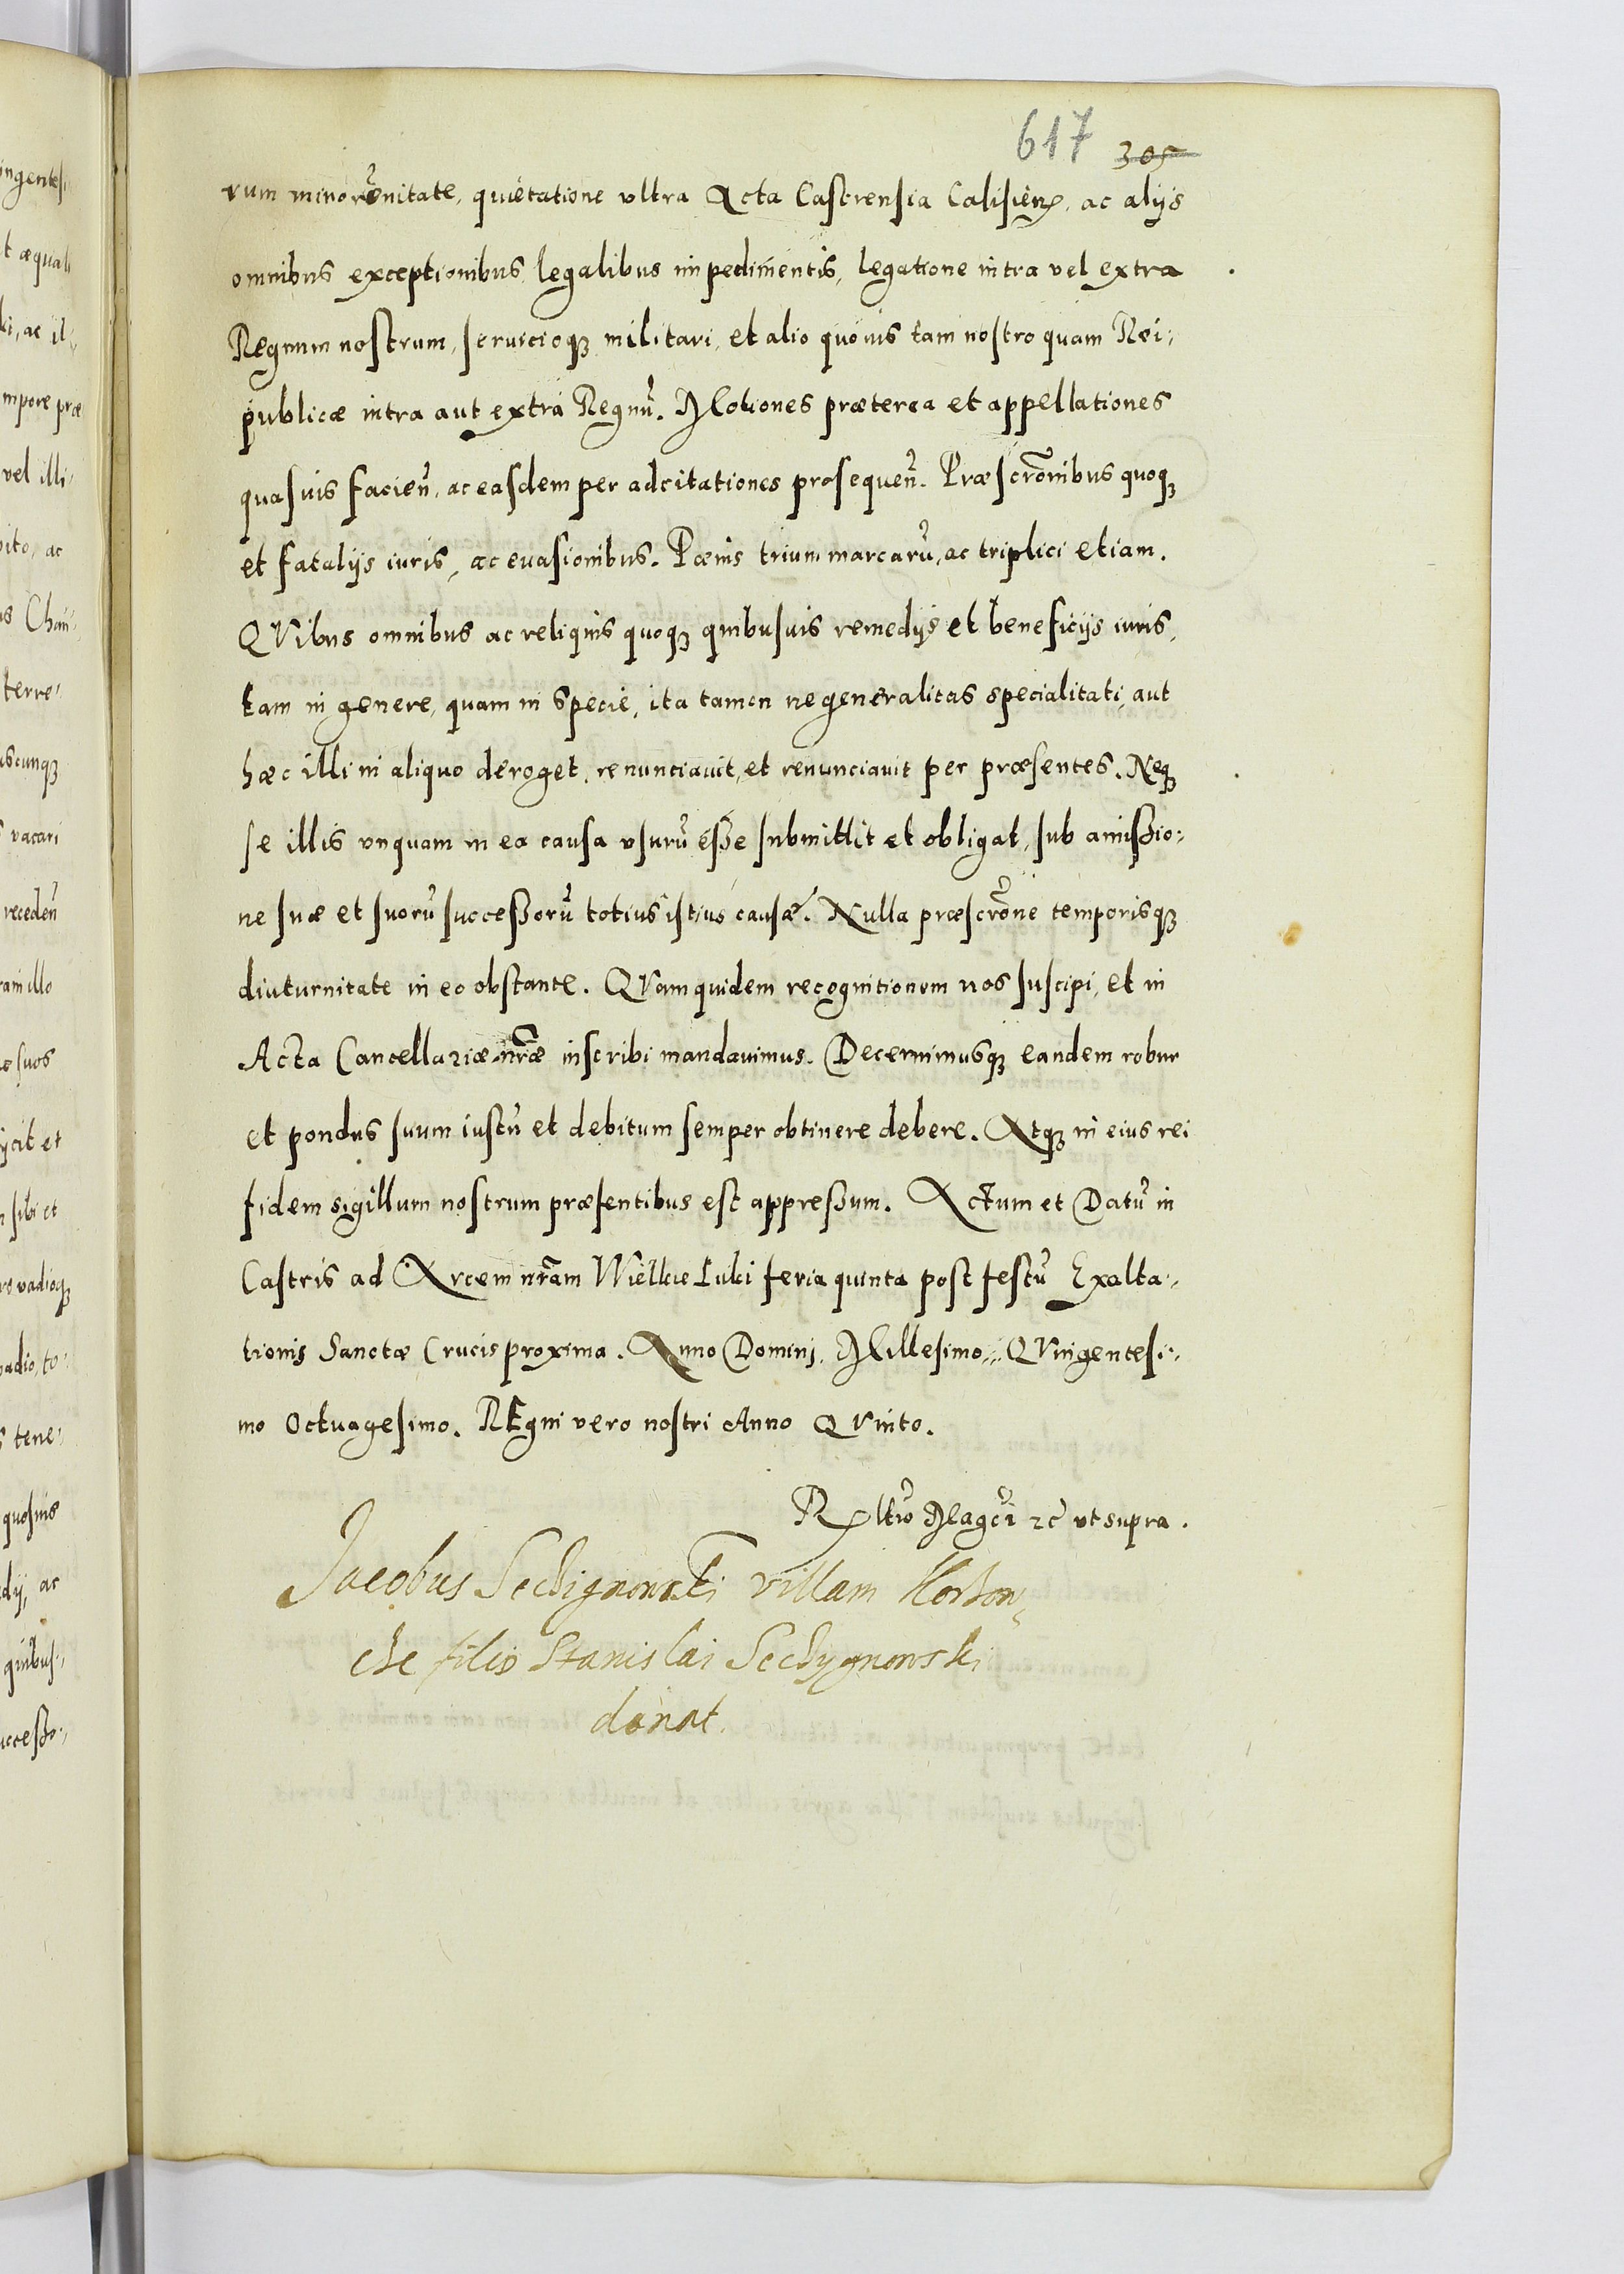 617 305
rum minorēnitate, quietatione vltra Acta Castrensia Calisień, ac alijs
omnibus exceptionibus legalibus impedimentis, legatione intra vel extra
Regnum nostrum, seruicioqз militari, et alio quouis tam nostro quam Rei-
publicæ intra aut extra Regnū. Motiones præterea et appellationes
quasuis facień, ac easdem per adcitationes prosequeń. Præscrōnibus quoqз
et fatalijs iuris, ac euasionibus. Pœnis trium marcarū, ac triplici etiam.
QVibus omnibus ac reliquis quoqз quibusuis remedijs et beneficijs iuris,
tam in genere, quam in specie, ita tamen ne generalitas specialitati, aut
hæc illi in aliquo deroget, renunciauit, et renunciauit per præsentes. Neqз
se illis vnquam in ea causa vsurū esse submittit et obligat, sub amissio-
ne suæ et suorū successorū totius istius causæ. Nulla præscrōne temporisqз
diuturnitate in eo obstante. QVam quidem recognitionem nos suscipi, et in
Acta Cancellariæ nrāe inscribi mandauimus. Decernimusqз eandem robur
et pondus suum iustū et debitum semper obtinere debere. Atqз in eius rei
fidem sigillum nostrum præsentibus est appressum. Actum et Datū in
Castris ad Arcem nrām Wielkie Luki feria quinta post festū Exalta-
tionis Sanctæ Crucis proxima. Anno Domini, Millesimo QVingentesi-
mo Octuagesimo. REgni vero nostri Anno QVinto.
Rltio Magci zc ut supra.
Jacobus Sechignowski villam
filio Stanislai Sechygnowski
donat.